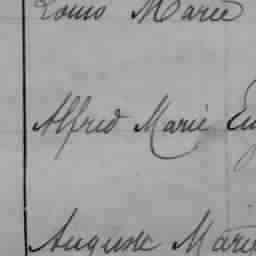 Louis Marie
Alfred Marie
Auguste Marie